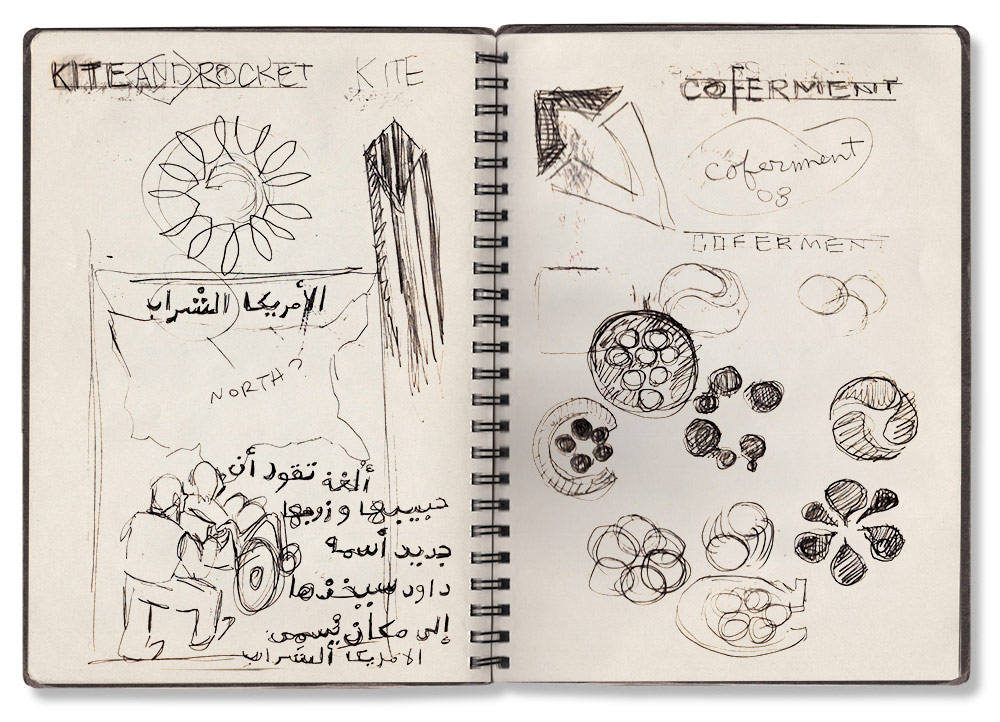 KITE AND ROCKET KITE
الأمريكا الشراب
NORTH?
ألغة تقود أن
حبيبها و زوجها
جديد أسمه
داود سيخذها
إلى مكان يسمى
الأمريكا الشراب
COFERMENT
coferment
08
COFERMENT